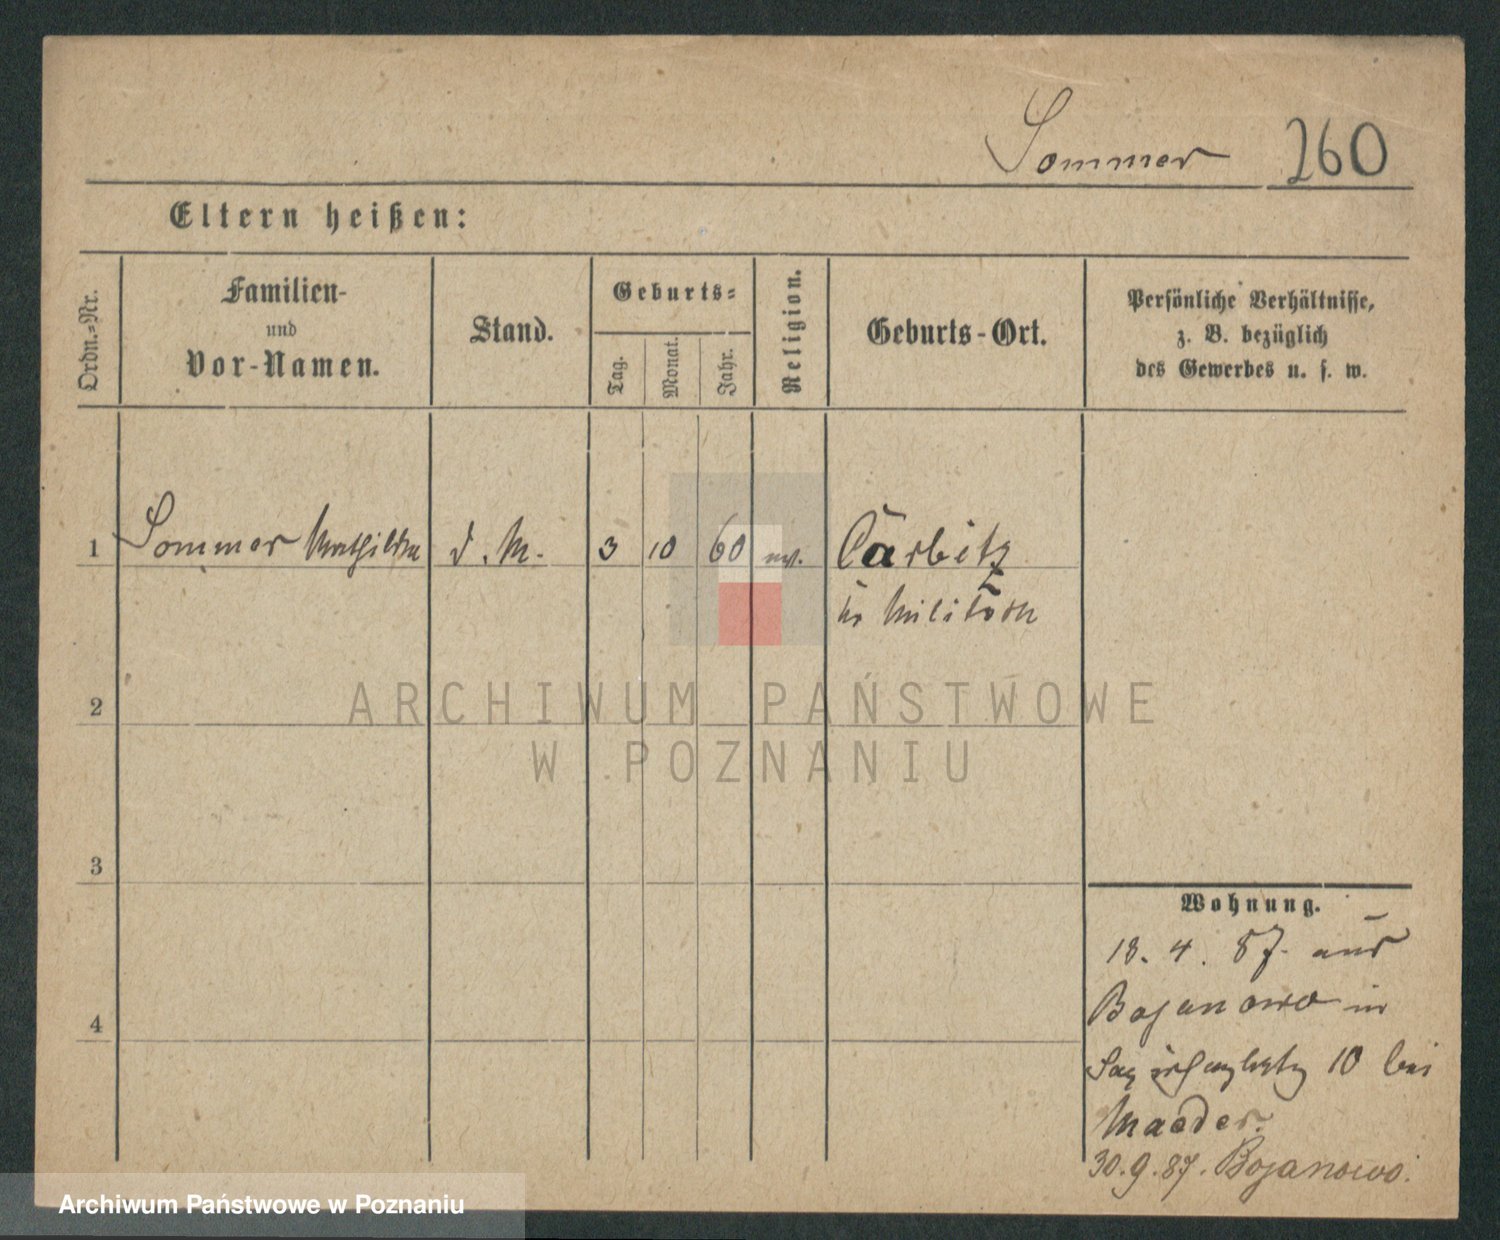 Sommer 260
Eltern heißen:
Ordn.-Nr.
Familien-
und
Vor-Namen.
Stand.
Geburts-
Tag.
Monat.
Jahr.
Religion.
Geburts-Ort.
Persönliche Verhältnisse,
z. B. bezüglich
des Gewerbes u. s. w.
1 Sommer Mathilde d. M. 3 10 60 ev. Carbitz
Kr Militsch
2
3
4
Wohnung.
18. 4. 87. aus
Bojanowo in
10 bei
Maeder.
30.9.87. Bojanowo.
ARCHIWUM PAŃSTWOWE
W POZNANIU
Archiwum Państwowe w Poznaniu